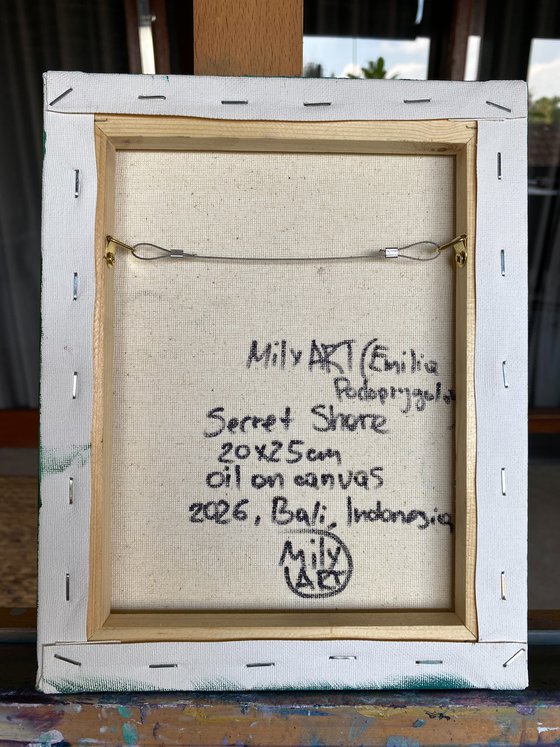 Mily ART (Emilia
Podoprygolov
Serret Shore
20x25cm
oil on canvas
2026, Bali, Indonesia
Mily
ART